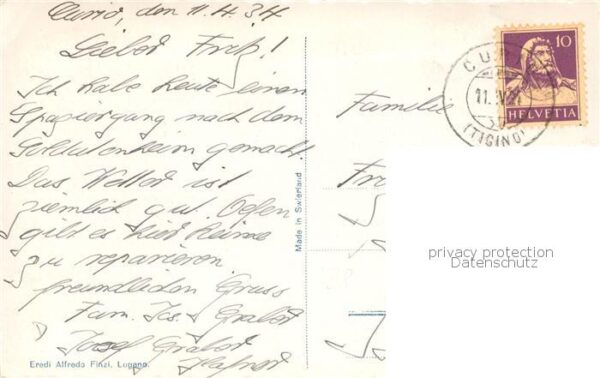 Curio, den 11.4.34
Lieber Fritz!
Ich habe heute einen
Spaziergang nach dem
Soldatenheim gemacht.
Das Wetter ist
ziemlich gut. Oefen
gibt es hier keine
zu reparieren
freundlichen Gruss
Fam. Jos. Graber
Josef Graber
Hafner
Eredi Alfredo Finzi, Lugano.
Made in Swierland
Familie
CUR
11.IV.
(TICINO)
10
HELVETIA
privacy protection
Datenschutz